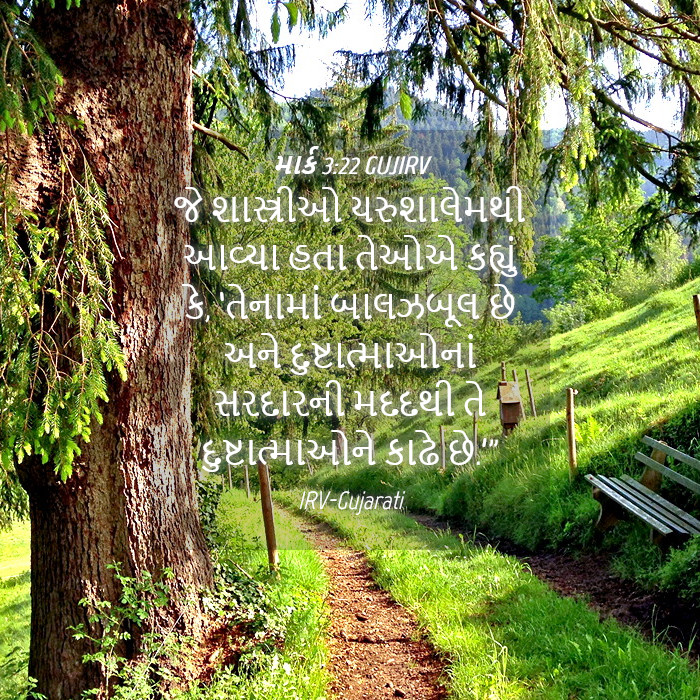 માર્ક 3:22 GUJIRV
જે શાસ્ત્રીઓ યરુશાલેમથી
આવ્યા હતા તેઓએ કહ્યું
કે, 'તેનામાં બાલઝબૂલ છે
અને દુષ્ટાત્માઓનાં
સરદારની મદદથી તે
દુષ્ટાત્માઓને કાઢે છે.'"
IRV-Gujarati